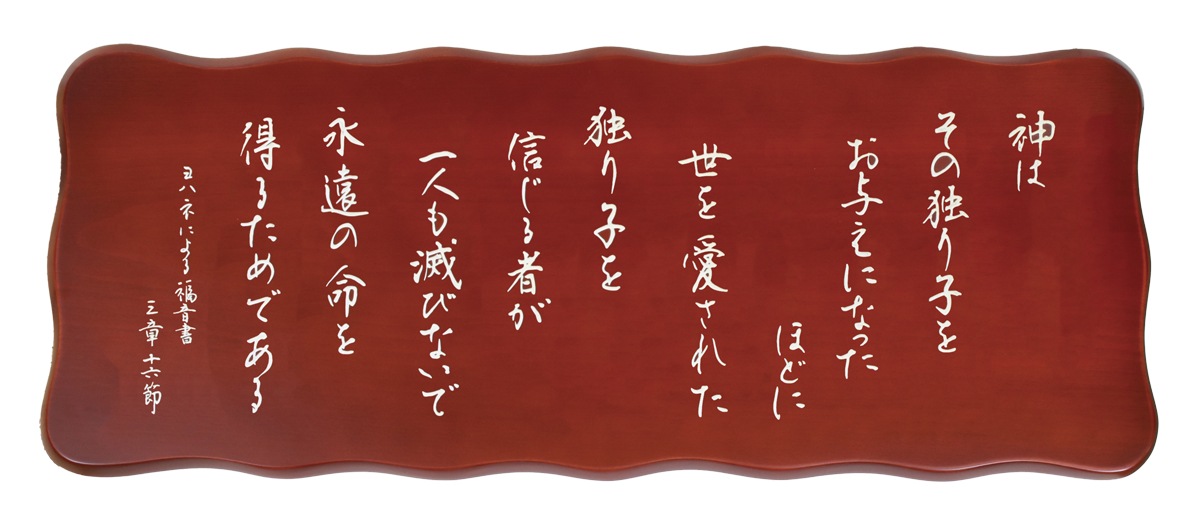 神は
その独り子を
お与えになった
ほどに
世を愛された
独り子を
信じる者が
一人も滅びないで
永遠の命を
得るためである
ヨハネによる福音書
三章十六節